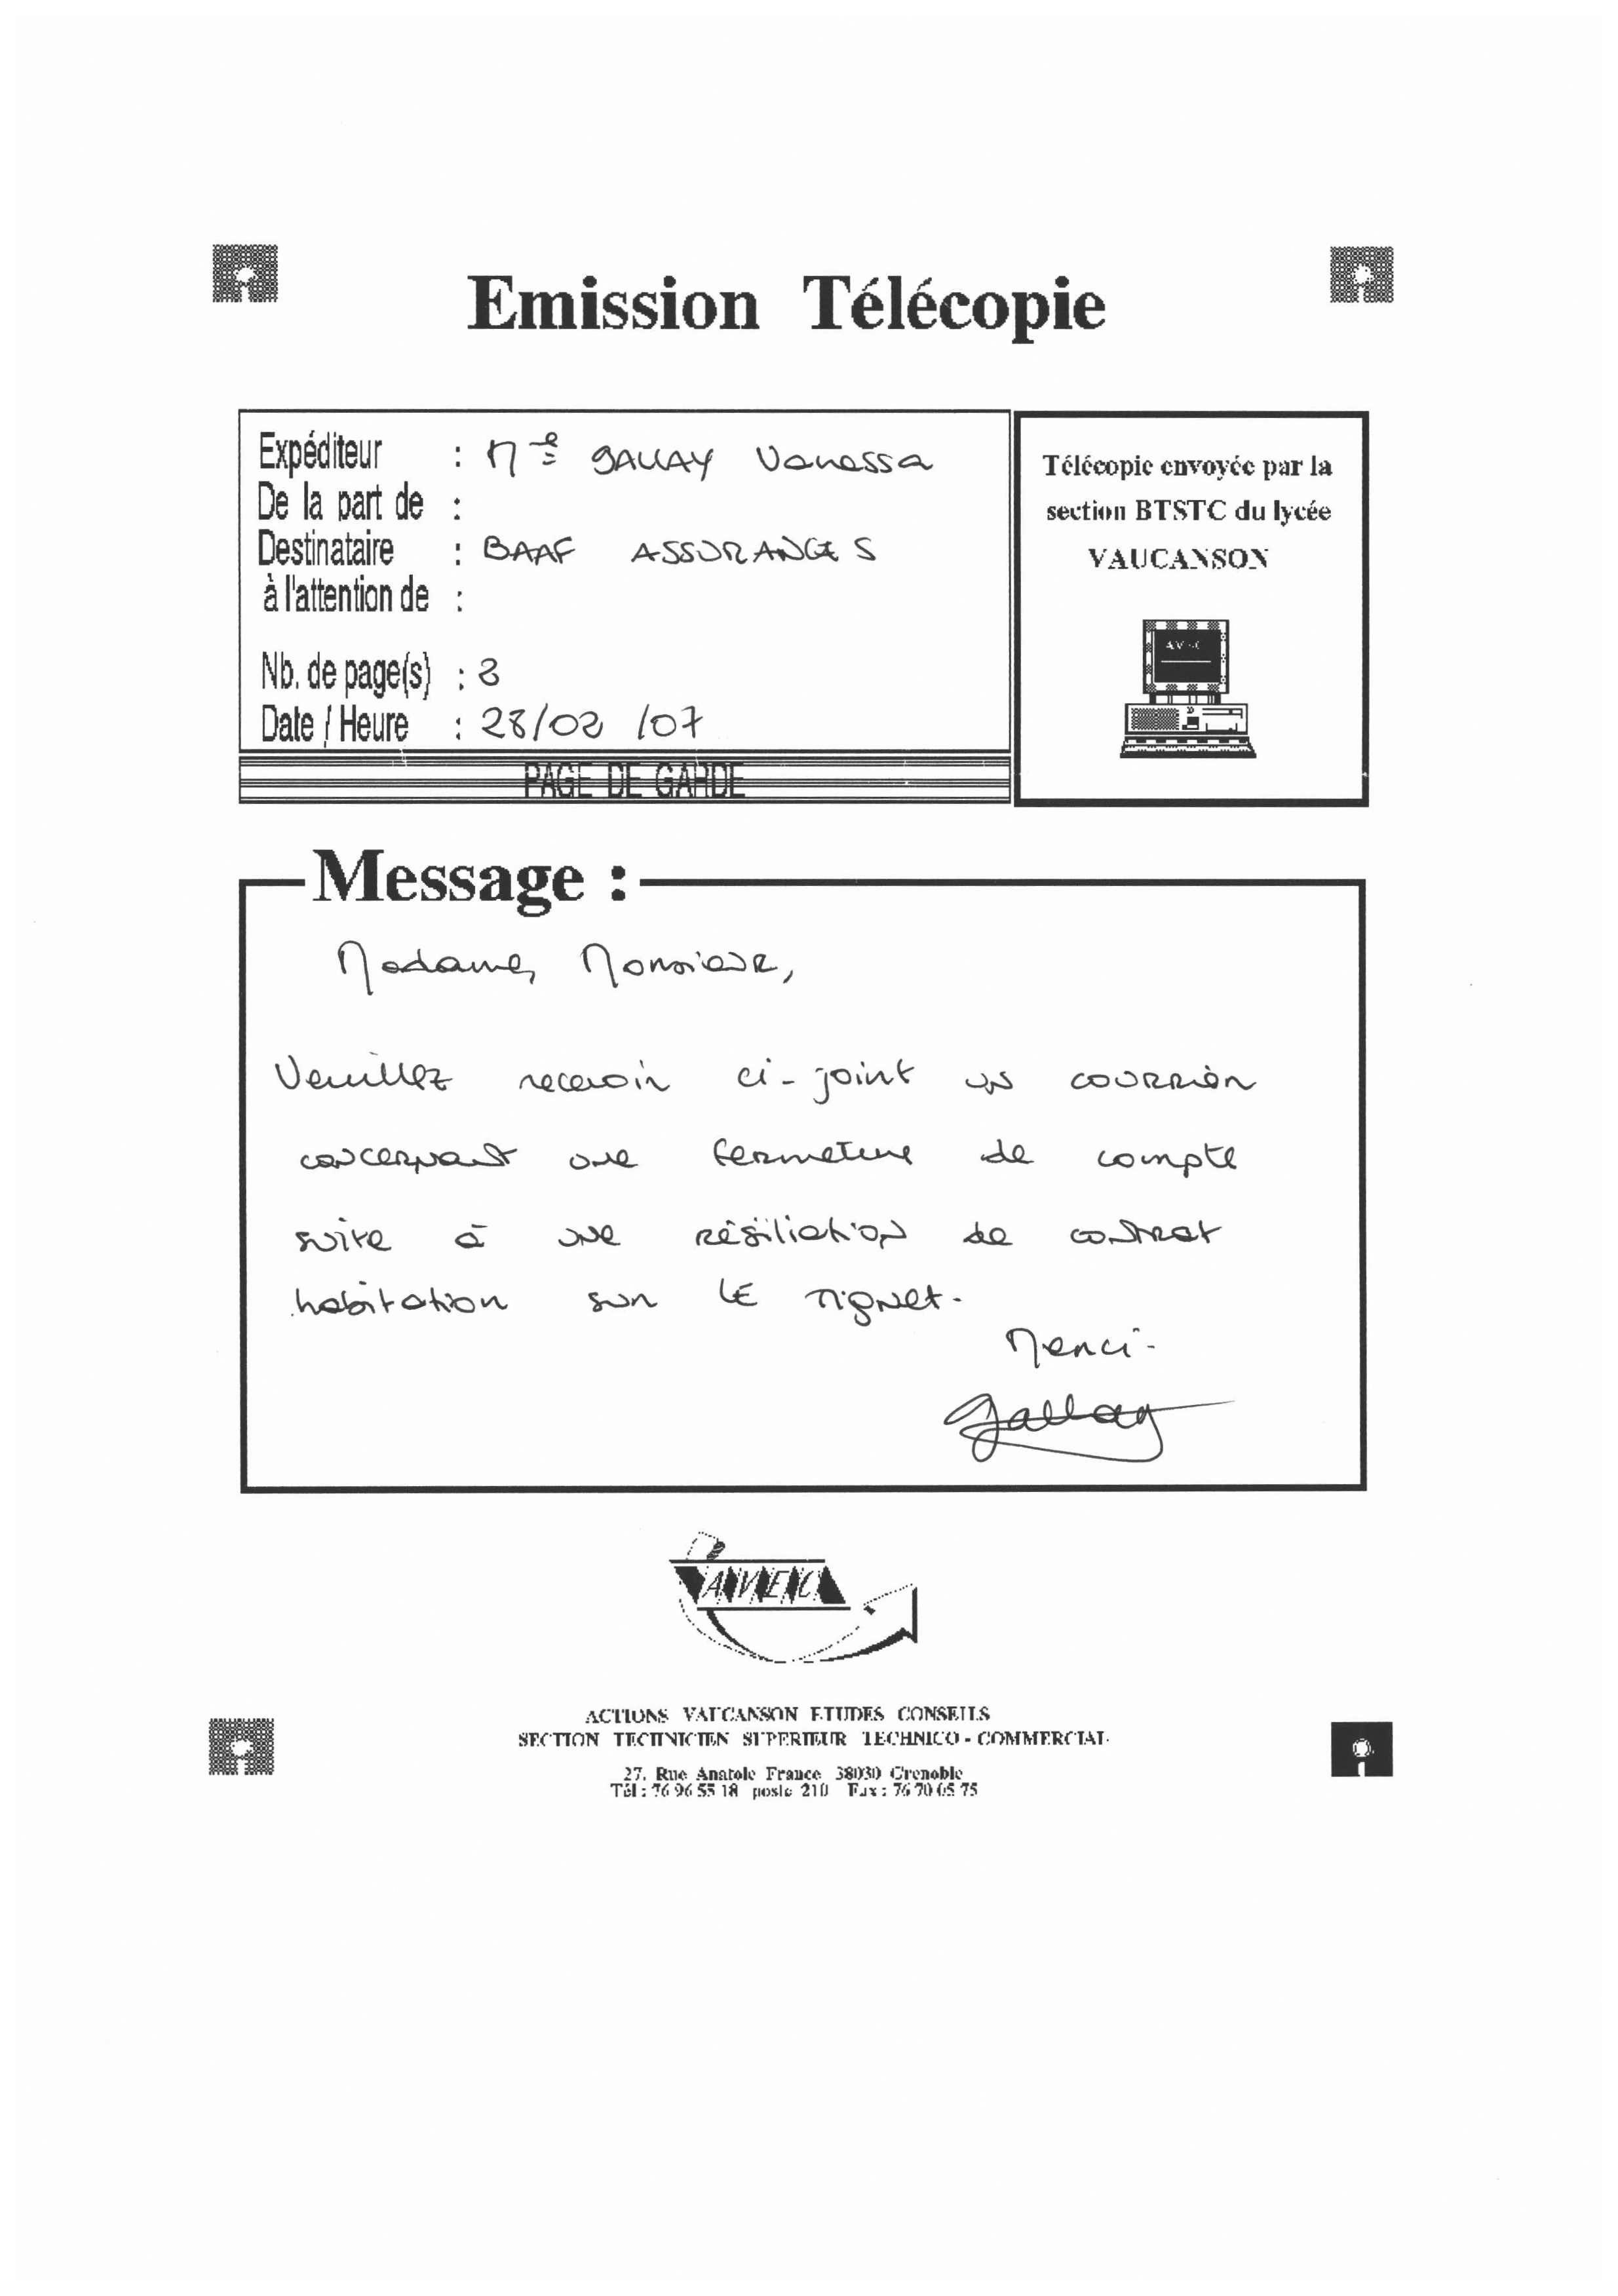 Emission Télécopie
Expéditeur : Mme GALLAY Vanessa
De la part de :
Destinataire : BAAF ASSURANCES
à l'attention de :
Nb. de page(s) : 2
Date / Heure : 28/02/07
PAGE DE GARDE
Télécopie envoyée par la
section BTSTC du lycée
VAUCANSON
Message :
Madame, Monsieur,
Veuillez recevoir ci-joint un courrier
concernant une fermeture de compte
suite à une résiliation de contrat
habitation sur LE Tignet.
Merci.
Gallay
AVEC
ACTIONS VAUCANSON ETUDES CONSEILS
SECTION TECHNICIEN SUPERIEUR TECHNICO - COMMERCIAL
27, Rue Anatole France 38030 Grenoble
Tél : 76 96 55 18 poste 210 Fax : 76 70 05 75